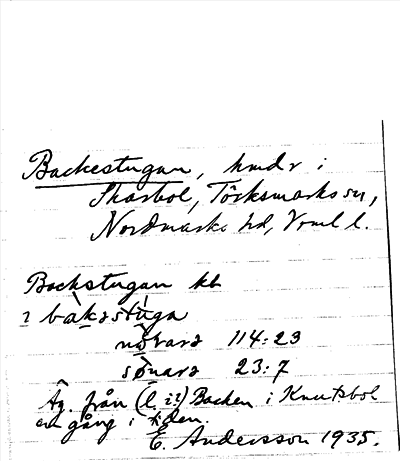 Backestugan, hmdr i
Skarbol, Töcksmarks sn,
Nordmarks hd, Vrml l.
Backstugan kb
i bàkastùga
nôvara 114:23
sônara 23:7
Äg. från (l. i?) Backen i Knutsbol
en gång i tiden.
E. Andersson 1935.